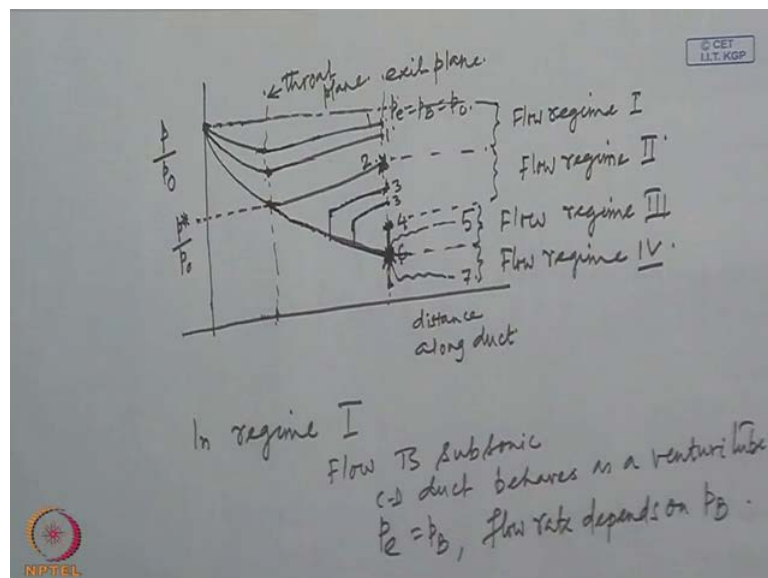 © CET
I.I.T. KGP
throat plane
exit plane.
Pe = PB = P0
Flow regime I
1
p/p0
2
Flow regime II
3
3
p*/p0
4
5
Flow regime III
6
7
Flow regime IV
distance
along duct
In regime I
Flow is subsonic
C-D duct behaves as a venturi tube
Pe = PB, flow rate depends on PB.
NPTEL